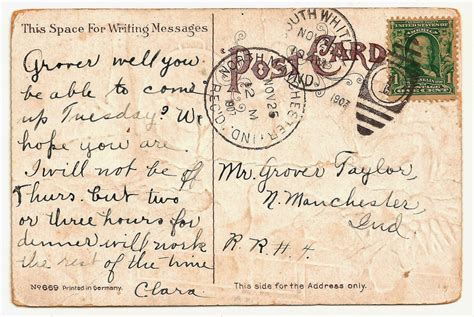 This Space For Writing Messages
Grover will you
be able to come
up Tuesday? We
hope you are.
I will not be of
Thurs. but two
or three hours for
dinner will work
the rest of the time
Clara.
No 669 Printed in Germany.
POST CARD
SOUTH WHIT
NOV
IND.
1907
NORTH MANCHESTER, IND.
REC'D
NOV 25
12 M
1907
1 1
ONE CENT
Mr. Grover Taylor,
N. Manchester
Ind.
R.R. #4.
This side for the Address only.